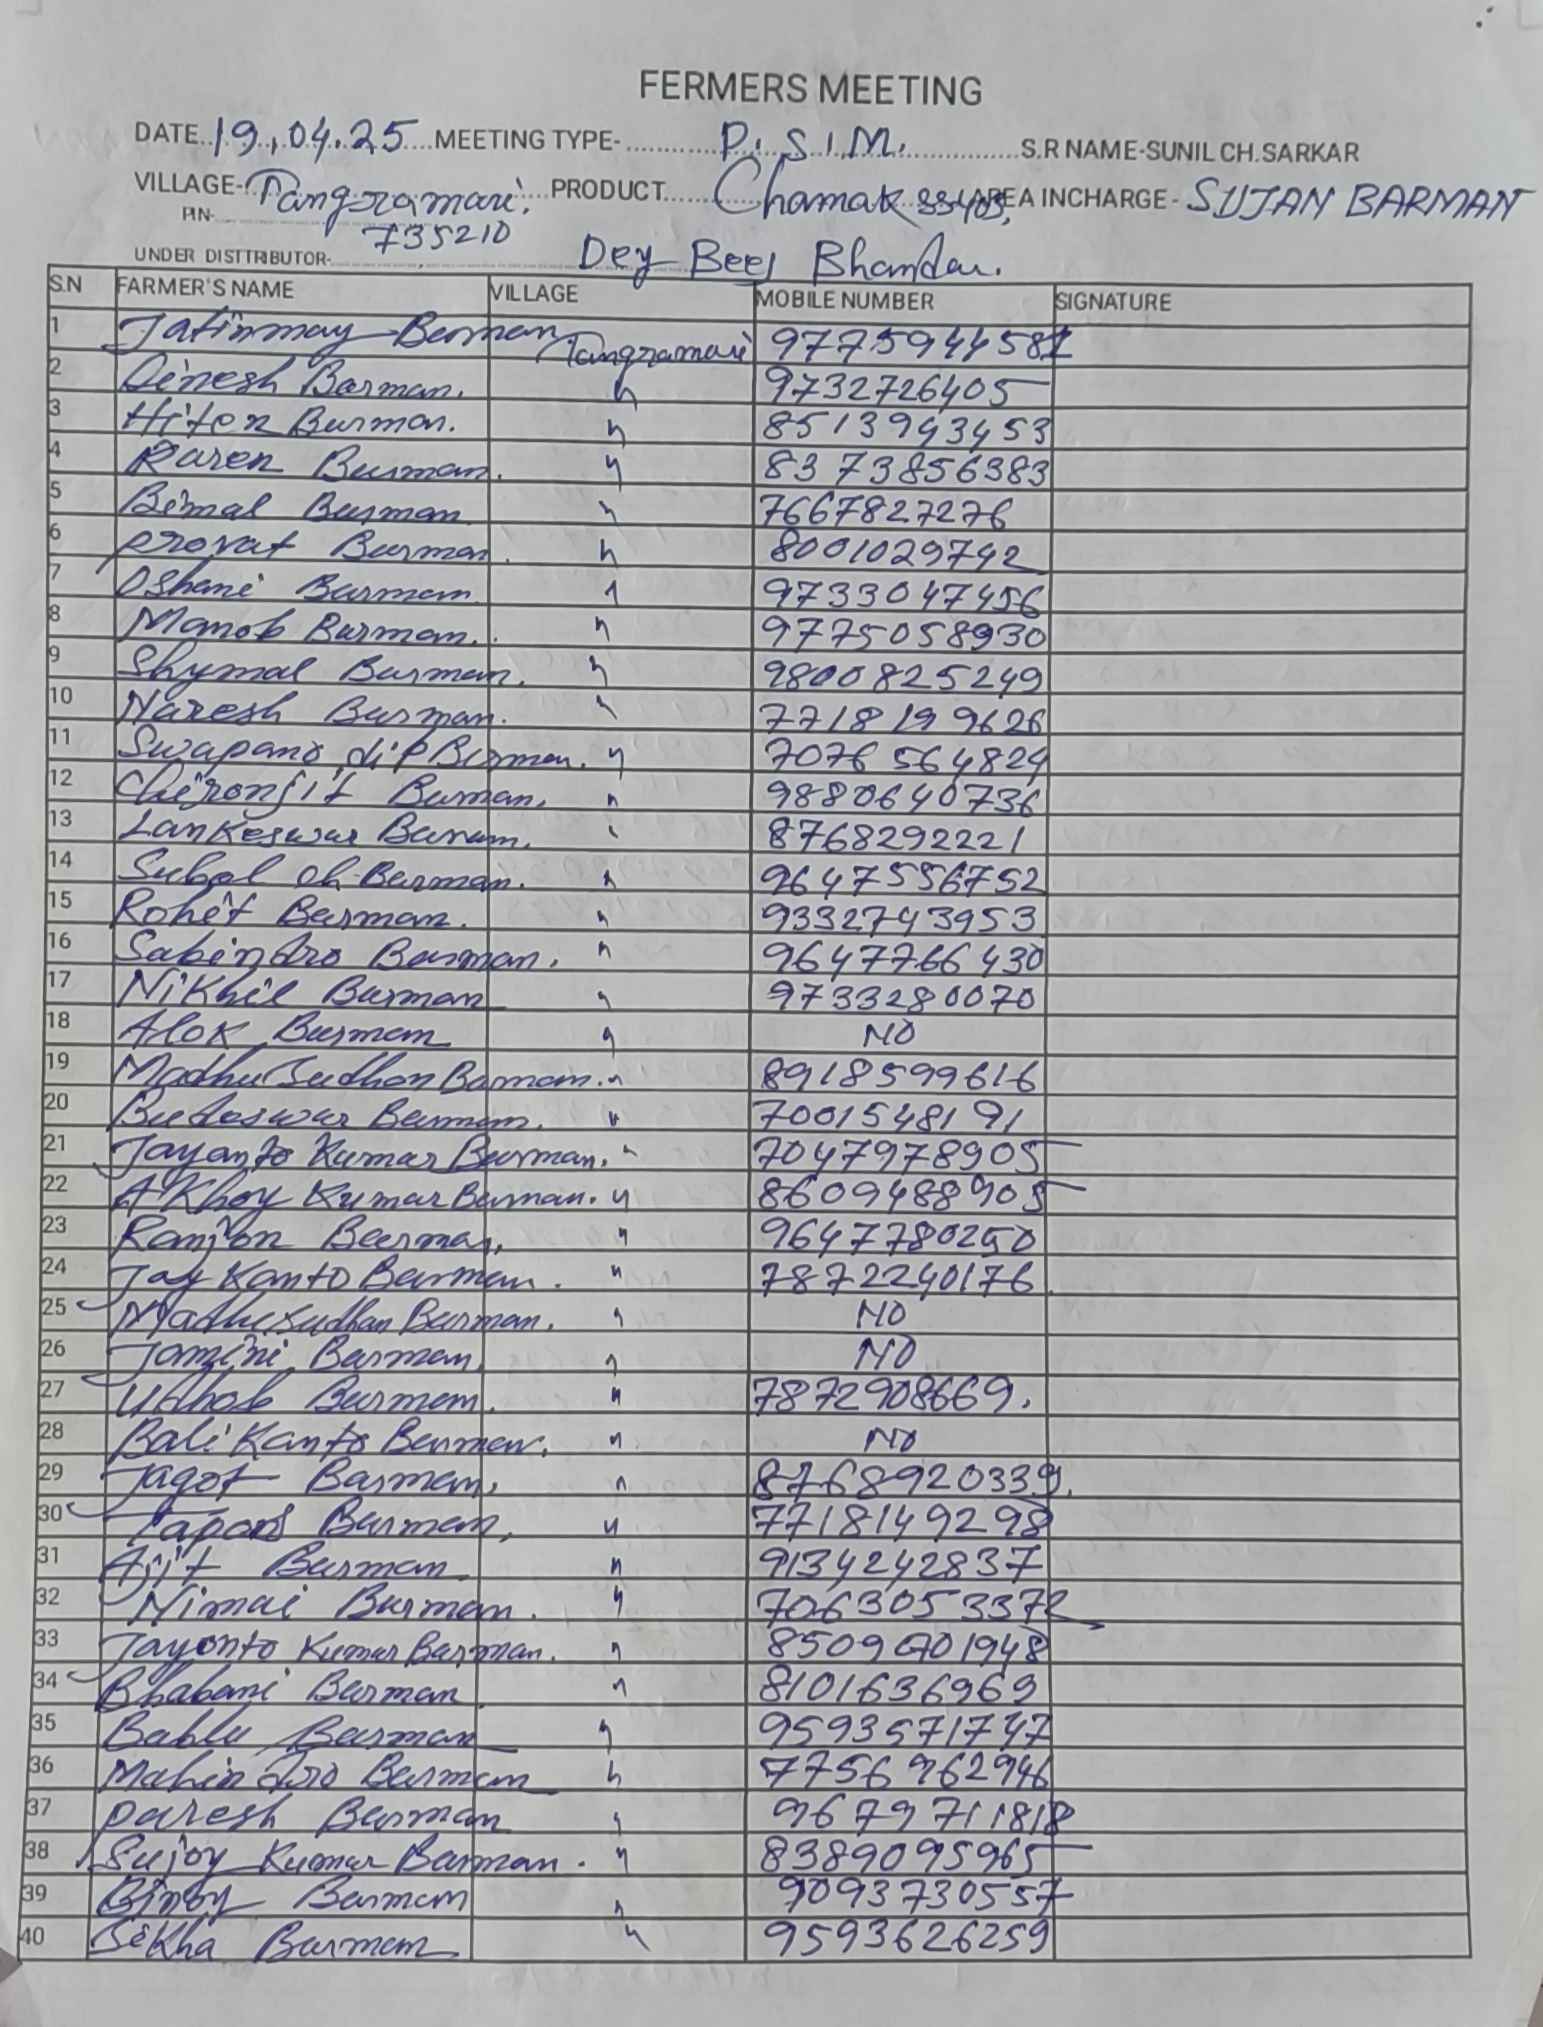 FERMERS MEETING
DATE..19.04.25....MEETING TYPE-............P.S.I.M..................S.R NAME-SUNIL CH.SARKAR
VILLAGE-Tangramari....PRODUCT......Chamak 33403, AREA INCHARGE - SUJAN BARMAN
PIN- 735210
UNDER DISTTRIBUTOR-............Dey Beej Bhandar.
S.N FARMER'S NAME VILLAGE MOBILE NUMBER SIGNATURE
1 Jatinmay Barman Tangramari
2 Dinesh Barman. " 9732726405
3 Hiten Burman. " 8513943453
4 Raren Burman. " 8373856383
5 Bimal Burman " 7667827276
6 Provat Burman. " 8001029742
7 Oshani Burman " 9733047456
8 Manob Burman. " 9775058930
9 Shymal Burman. " 9800825249
10 Naresh Burman. " 7718199626
11 Swapano dip Burman. " 7076564824
12 Chironjit Burman. " 9880640736
13 Lankeswar Barman. " 8768292221
14 Subol ch. Barman. " 9647556752
15 Rohit Barman. " 9332743953
16 Sabindro Barman. " 9647766430
17 Nikhil Burman " 9733280070
18 Alok Burman " NO
19 Madhusudhon Barman. " 8918599616
20 Budeswar Barman. " 7001548191
21 Jayanto Kumar Burman. " 7047978905
22 Akhoy Kumar Burman. " 8609488905
23 Ranjon Barman. " 9647780250
24 Jay Kanto Barman. " 7872240176
25 Madhusudhan Burman. " NO
26 Jomini Barman. " NO
27 Udhob Burman. " 7872908669.
28 Bali Kanto Barman. " NO
29 Jagot Barman. " 8768920339.
30 Tapons Burman. " 7718149298
31 Ajit Burman " 9134242837
32 Nimai Burman. " 7063053372
33 Jayonto Kumar Barman. " 8509601948
34 Bhabani Barman. " 8101636969
35 Bablu Barman " 9593571747
36 Mahindro Barman " 7756962946
37 Paresh Burman " 9679711818
38 Sujoy Kumar Barman. " 8389095965
39 Binoy Barman " 9093730557
40 Sikha Burman " 9593626259